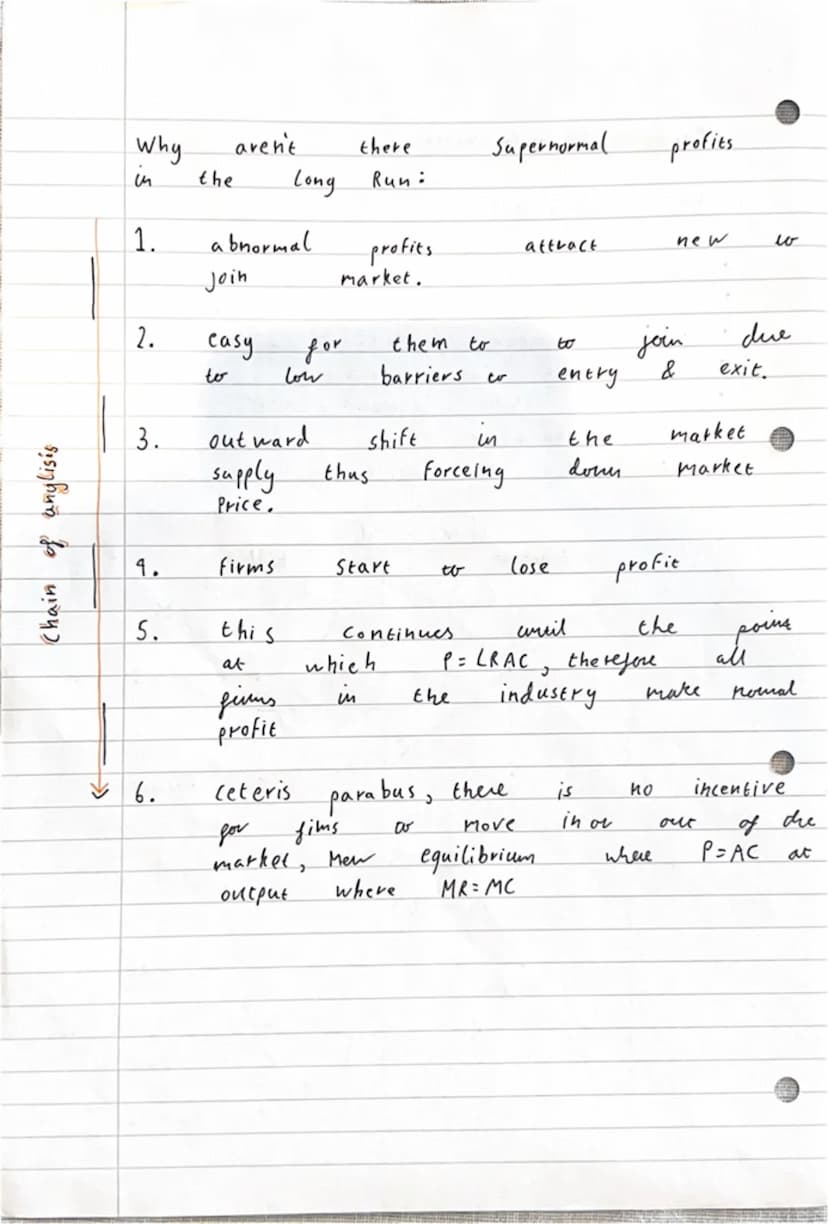 Why aren't there Supernormal profits
in the Long Run:
1. abnormal profits attract new to
join market.
2. easy for them to to join due
to low barriers to entry & exit.
3. outward shift in the market
supply thus forceing down market
Price.
4. firms start to lose profit
5. this continues until the point
at which P=LRAC, therefore all
firms in the industry make normal
profit
6. ceteris parabus, there is no incentive
for fims to move in or out of the
market, New equilibrium where P=AC at
output where MR=MC
Chain of anglisis